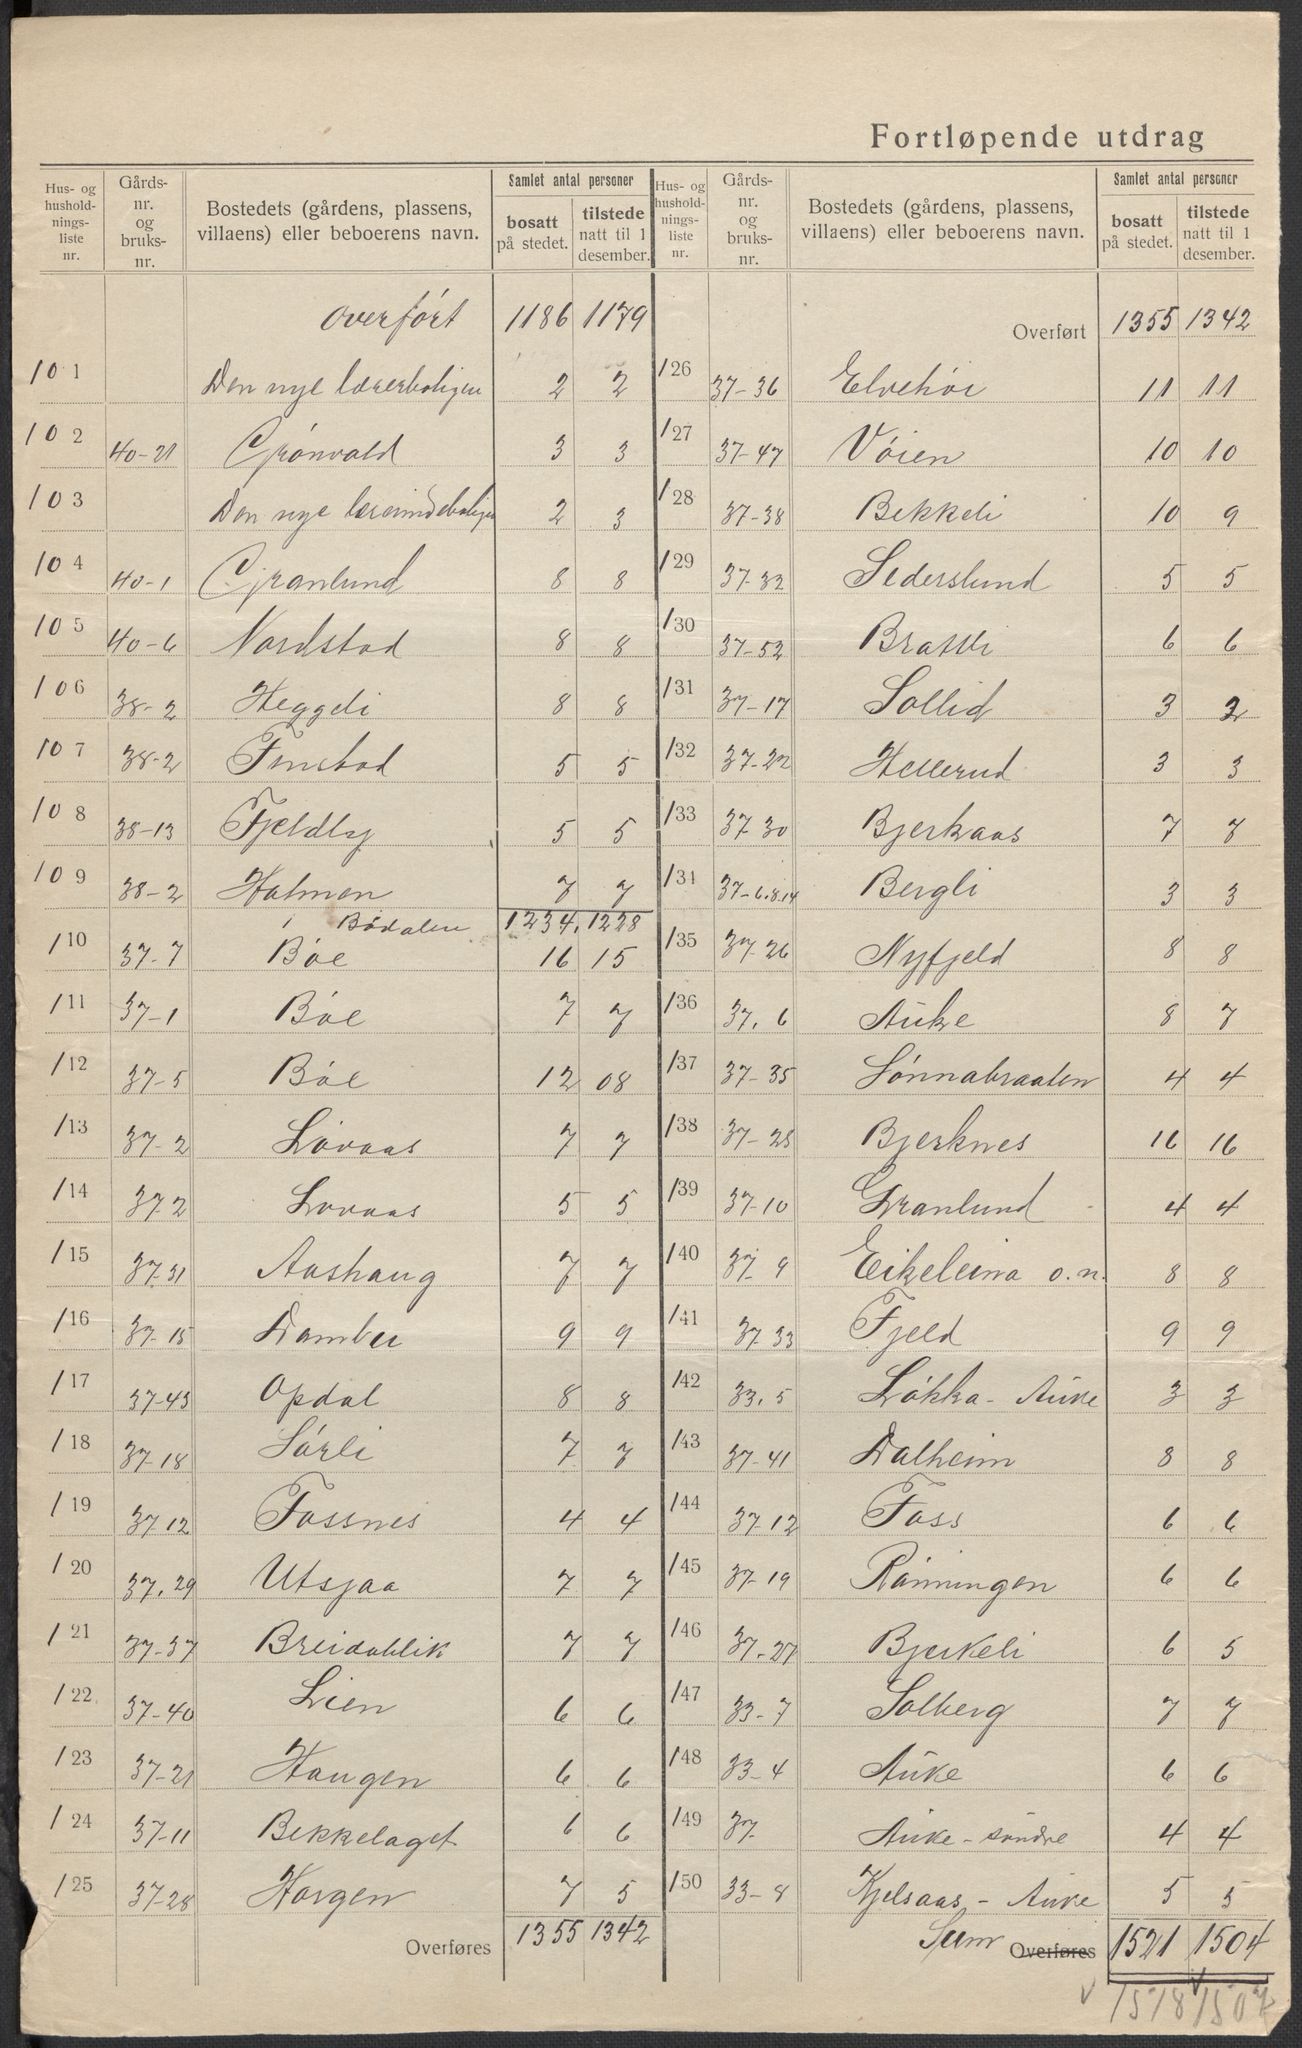 Fortløpende utdrag
Hus- og husholdningsliste nr.
Gårds- nr. og bruks- nr.
Bostedets (gårdens, plassens, villaens) eller beboerens navn.
Samlet antal personer
bosatt på stedet.
tilstede natt til 1 desember.
Hus- og husholdningsliste nr.
Gårds- nr. og bruks- nr.
Bostedets (gårdens, plassens, villaens) eller beboerens navn.
Samlet antal personer
bosatt på stedet.
tilstede natt til 1 desember.
Overført 1186 1179
101 Den nye lærerboligen 2 2
102 40-21 Grönvold 3 3
103 Den nye lærerindeboligen 2 3
104 40-1 Granlund 8 8
105 40-6 Nordstad 8 8
106 38-2 Heggeli 8 8
107 38-2 Finstad 5 5
108 38-13 Fjeldby 5 5
109 38-2 Holmen 7 7
i Bødalen 1234. 1228
110 37-7 Böe 16 15
111 37-1 Böe 7 7
112 37-5 Böe 12 08
113 37-2 Lövaas 7 7
114 37 2 Lövaas 5 5
115 37-31 Aashaug 7 7
116 37-15 Damber 9 9
117 37-43 Opdal 8 8
118 37-18 Sörli 7 7
119 37-12 Fossnes 4 4
120 37.29 Utsjaa 7 7
121 37-37 Breidablik 7 7
122 37-40 Lien 6 6
123 37-21 Haugen 6 6
124 37-11 Bekkelaget 6 6
125 37-28 Horgen 7 5
Overføres 1355 1342
Overført 1355 1342
126 37-36 Elvehöi 11 11
127 37-47 Vöien 10 10
128 37-38 Bekkeli 10 9
129 37-32 Sederslund 5 5
130 37-52 Bratli 6 6
131 37-17 Sollid 3 2
132 37-22 Hellerud 3 3
133 37-30 Bjerkaas 7 7
134 37-6.8.14 Bergli 3 3
135 37-26 Nyfjeld 8 8
136 37.6 Auke 8 7
137 37-35 Sönnabraaten 4 4
138 37-25 Bjerknes 16 16
139 37-10 Granlund 4 4
140 37-9 Eikeleina o.n. 8 8
141 37-33 Fjeld 9 9
142 33.5 Lökka - Auke 3 3
143 37-41 Dalheim 8 8
144 37-12 Foss 6 6
145 37-19 Rönningen 6 6
146 37-27 Bjerkeli 6 5
147 33-7 Solberg 7 7
148 33-4 Auke 6 6
149 37- Auke - söndre 4 4
150 33-8 Kjelsaas - Auke 5 5
Sum Overføres 1521 1504
1518 1507